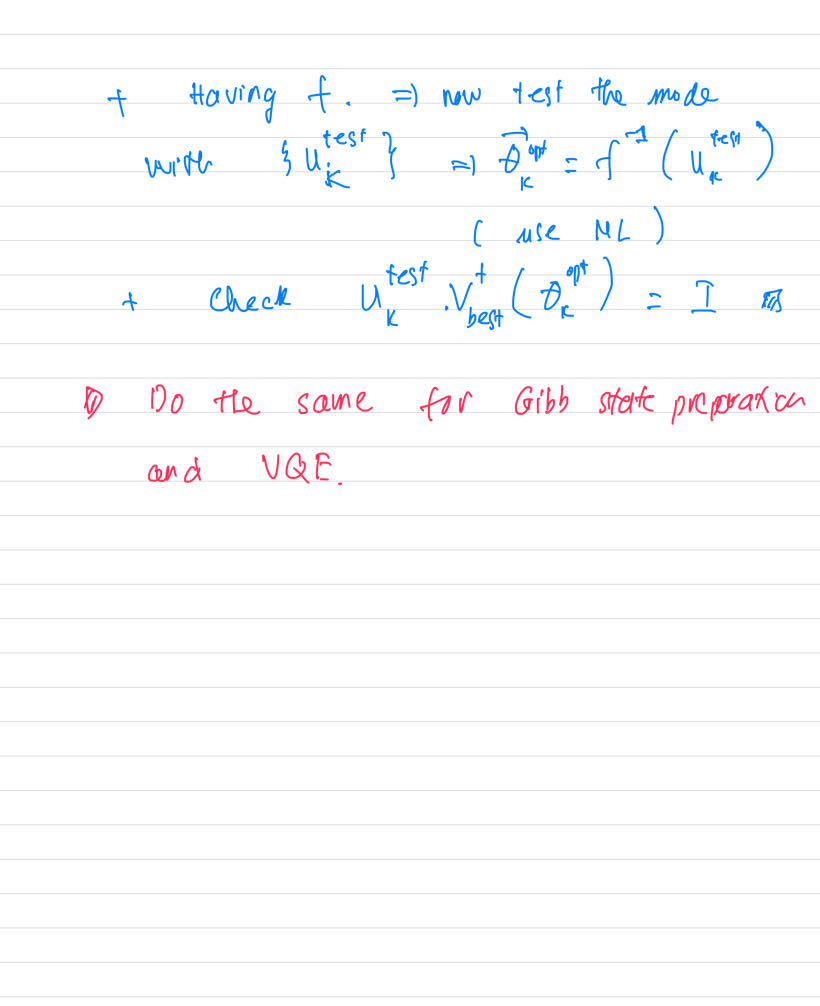 + Having f. => now test the mode
with {U_k^test} => θ⃗_k^opt = f^-1 (U_k^test)
( use ML )
+ Check U_k^test . V_best^† (θ_k^opt) = I
Do the same for Gibb state preparation
and VQE.